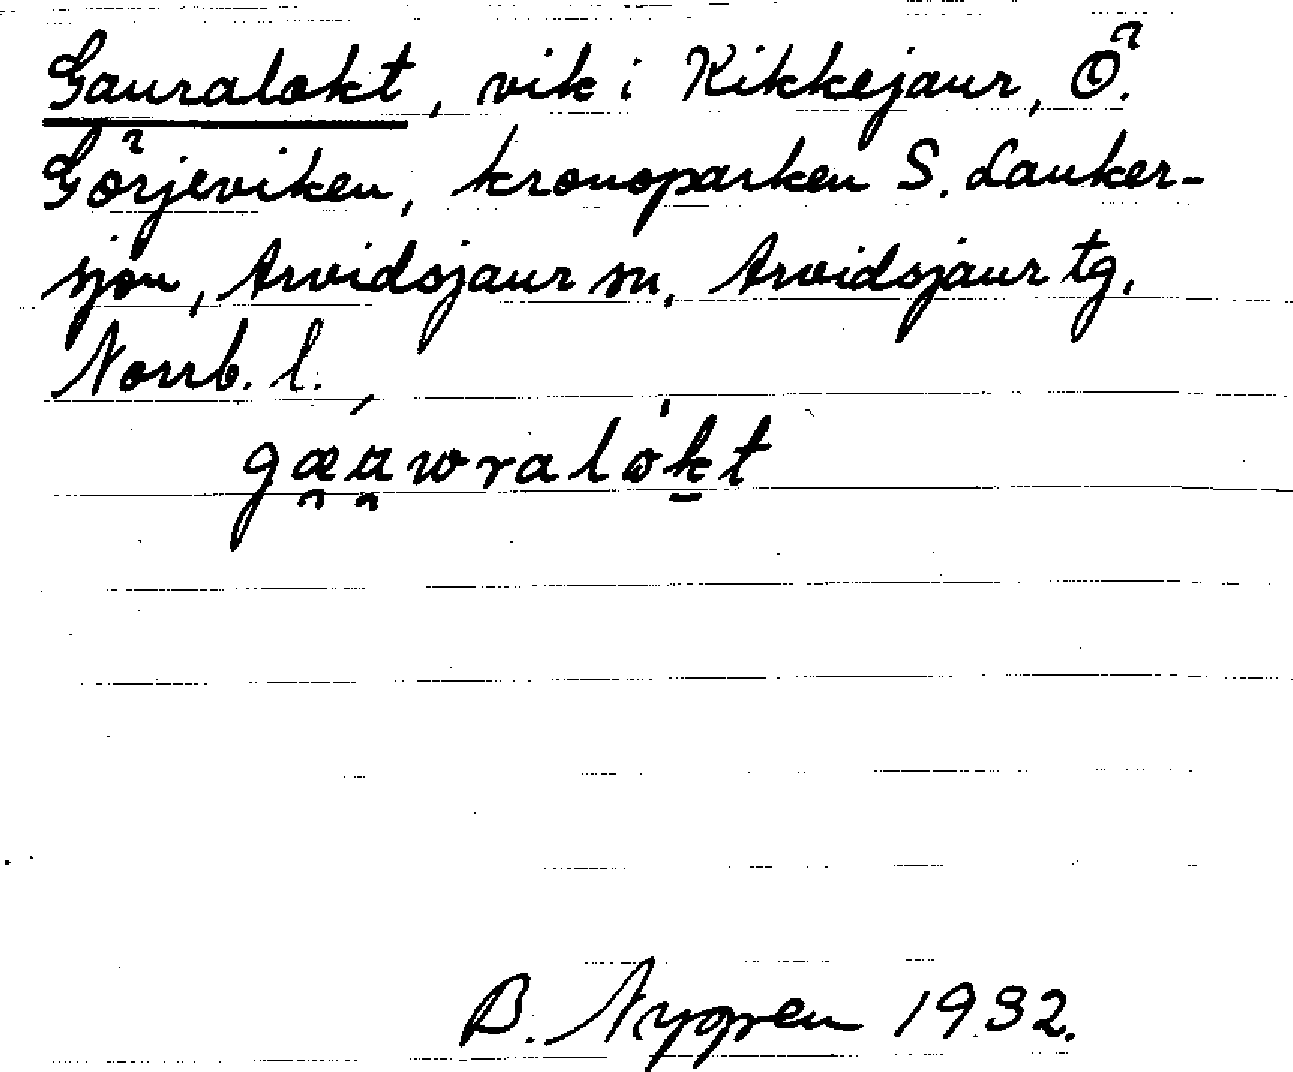 Gauralokt, vik i Kikkejaur, Ö.
Görjeviken, kronoparken S. Lauker-
sjön, Arvidsjaur sn, Arvidsjaur tg,
Norrb. l.
gæawralokt
B. Nygren 1932.